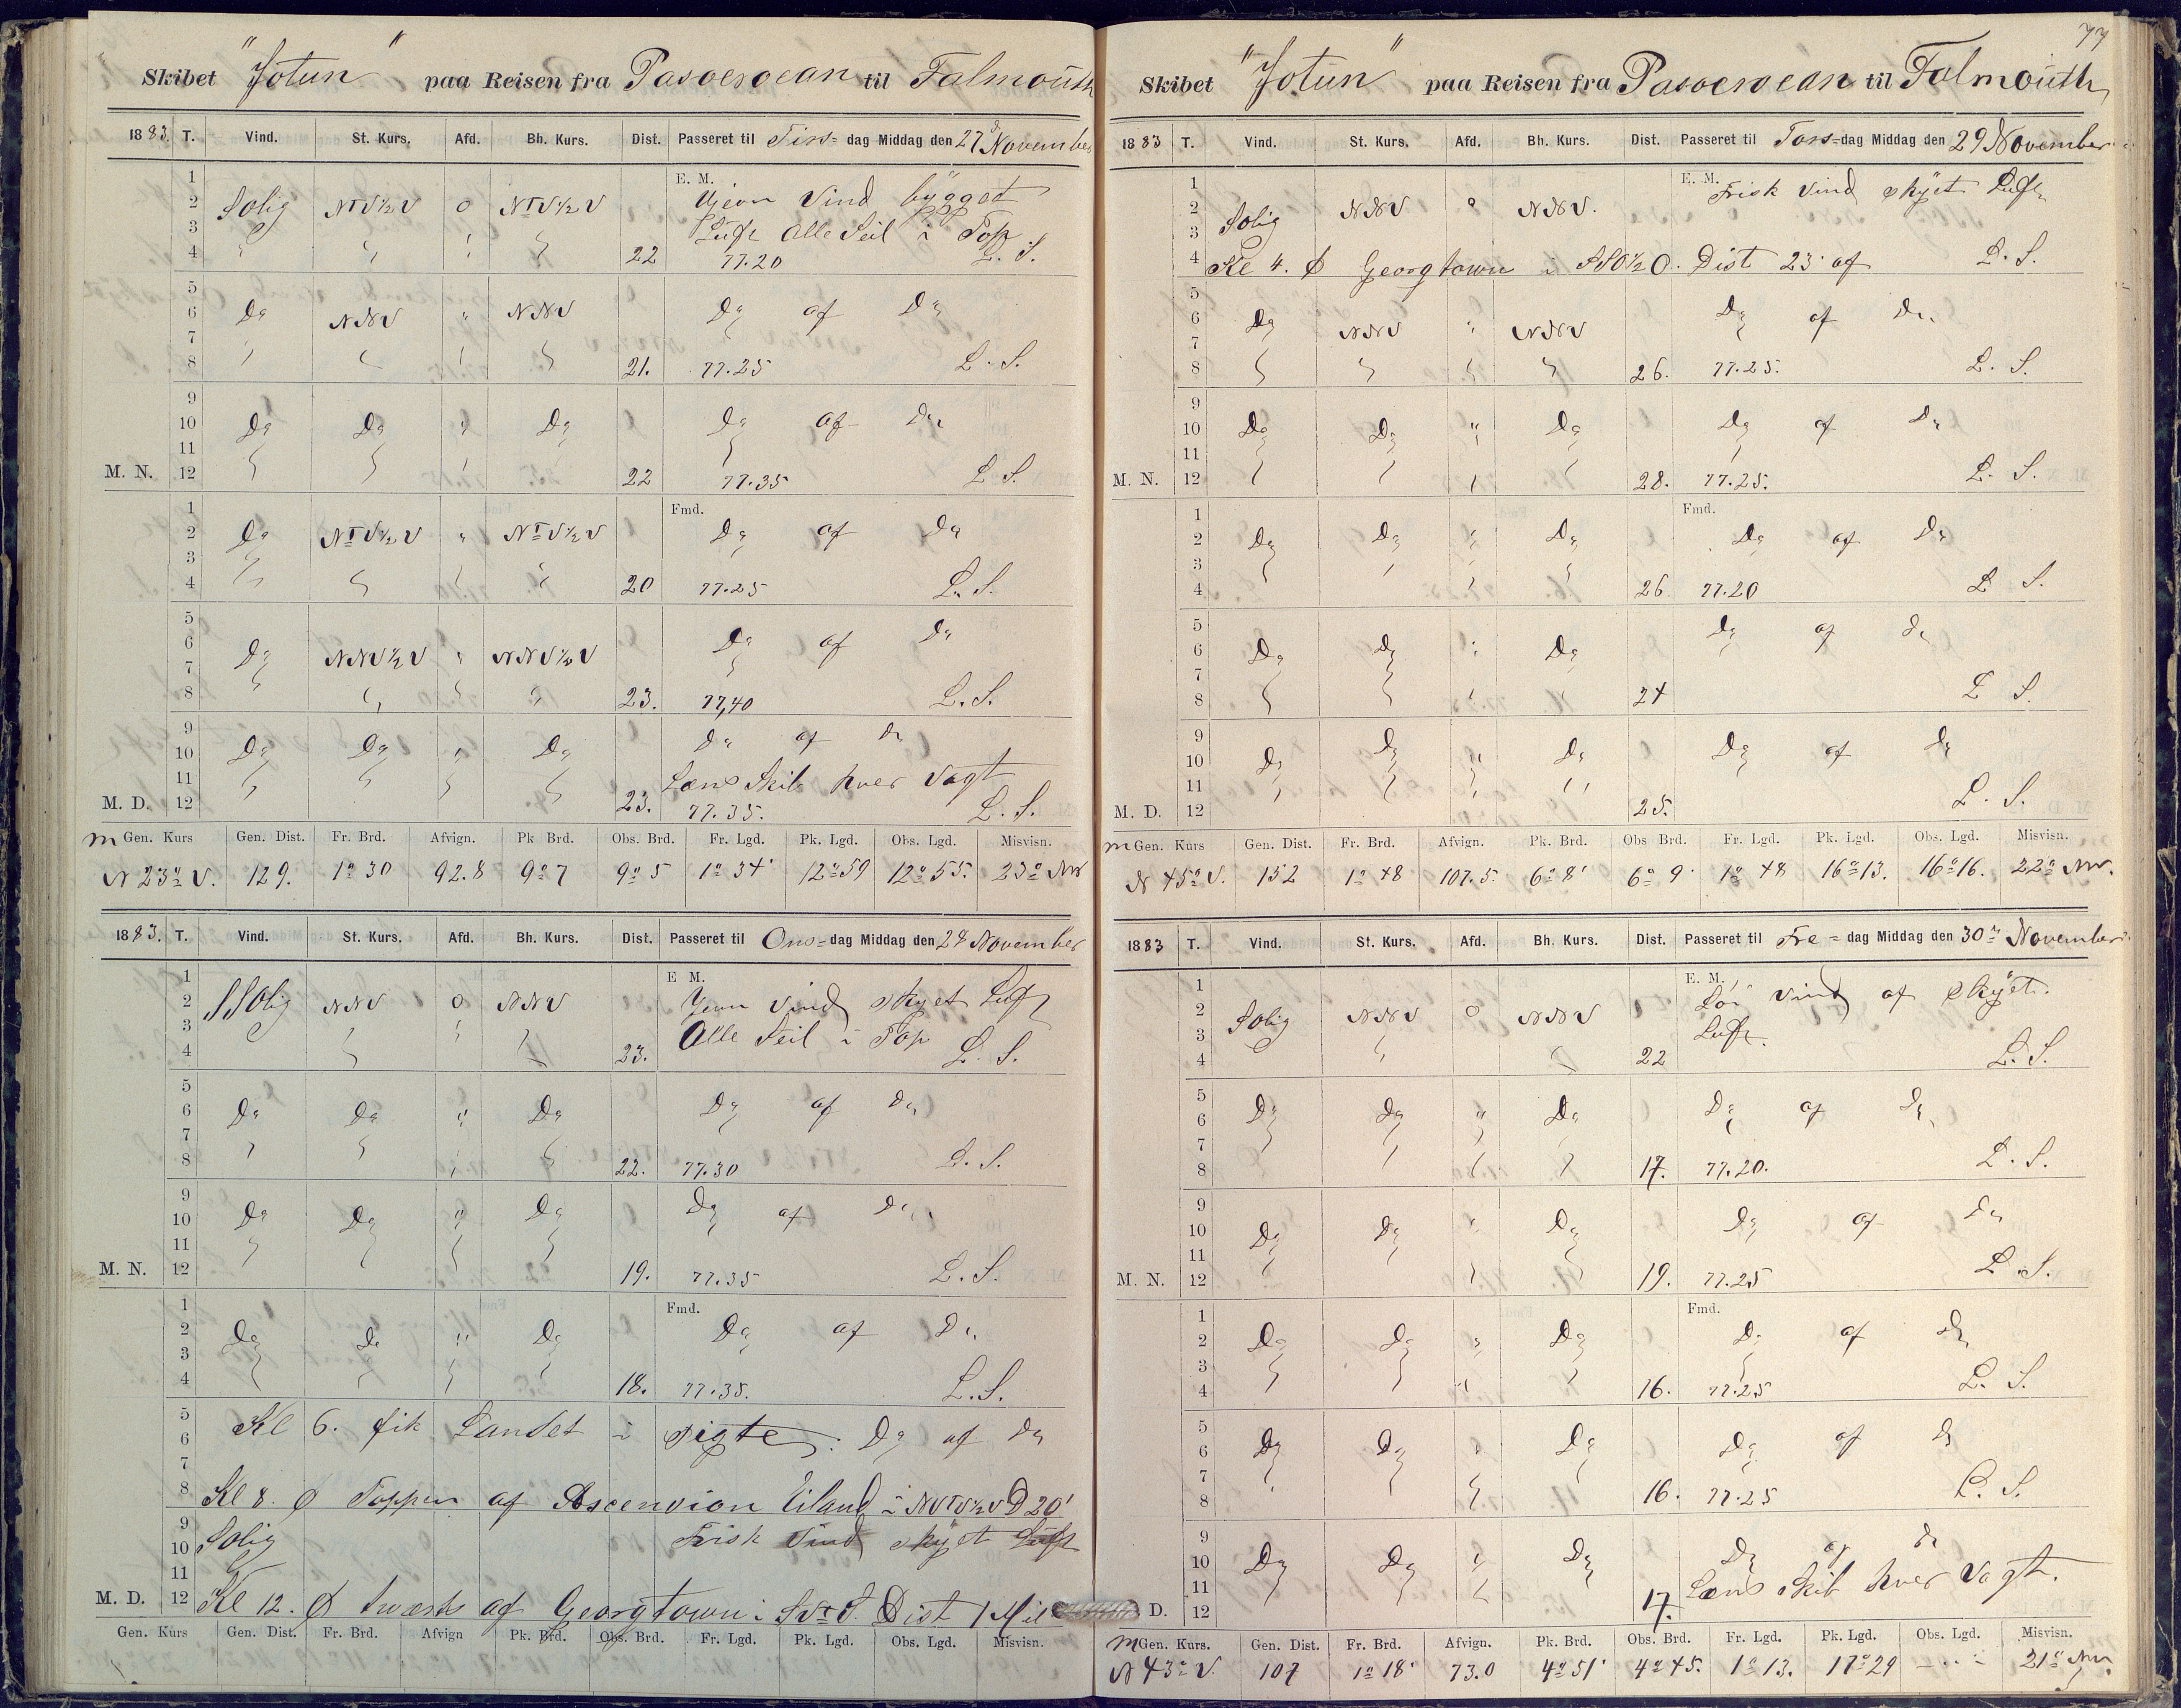 Skibet "Jotun" paa Reisen fra Pasoeroean til Falmouth
1883. T. Vind. St. Kurs. Afd. Bh. Kurs. Dist. Passeret til Tirs= dag Middag den 27d November
1 E. M.
2 SOlig NTV½V 0 NTV½V Vind bygget
3 Luft Alle Seil i Top
4 22 77.20 L. S.
5
6 Do NNV " NNV Do af Do
7
8 21. 77.25 L. S.
9
10 Do Do " Do Do af Do
11
M. N. 12 22 77.35 L. S.
1 Fmd.
2 Do NTV½V " NTV½V Do af Do
3
4 20 77.25 L. S.
5
6 Do NNV½V " NNV½V Do af Do
7
8 23. 77,40 L. S.
9 Do af Do
10 Do Do " Do
11 Læns Skib hver Vagt
M. D. 12 23. 77.35. L. S.
m Gen. Kurs Gen. Dist. Fr. Brd. Afvign. Pk Brd. Obs. Brd. Fr. Lgd. Pk. Lgd. Obs. Lgd. Misvisn.
N 23° V. 129. 1° 30 92.8 9° 7 9° 5 1° 34' 12° 59 12° 55. 23° NV
1883. T. Vind. St. Kurs. Afd. Bh. Kurs. Dist. Passeret til Ons= dag Middag den 28 November
1 E M.
2 SSOlig NNV 0 NNV Vind skyet Luft
3 Alle Seil i Top
4 23. L. S.
5
6 Do Do " Do Do af Do
7
8 22. 77.30 L. S.
9
10 Do Do " Do Do af Do
11
M. N. 12 19. 77.35 L. S.
1 Fmd.
2 Do Do " Do Do af Do
3
4 18. 77.35. L. S.
5
6 Kl 6. fik Landet i sigte: Do af Do
7
8 Kl 8. Ø Toppen af Ascension Eiland i NVTV½V D 20'
9
10 SOlig Frisk Vind skyet Luft
11
M. D. 12 Kl 12. Ø tværts af Georgtown i SVtS. Dist 1 Mil
Gen. Kurs Gen. Dist. Fr. Brd. Afvign Pk. Brd. Obs. Brd. Fr. Lgd. Pk. Lgd. Obs. Lgd. Misvisn.
77
Skibet "Jotun" paa Reisen fra Pasoeroean til Falmouth
1883 T. Vind. St. Kurs. Afd. Bh. Kurs. Dist. Passeret til Tors= dag Middag den 29 November
1 E. M. Frisk Vind skyet Luft
2 SOlig NNV " NNV.
3
4 Kl 4. Ø Georgtown i SSO½O. Dist 23' af L. S.
5
6 Do NNV " NNV Do af Do
7
8 26. 77.25. L. S.
9
10 Do Do " Do Do af Do
11
M. N. 12 28. 77.25. L. S.
1 Fmd.
2 Do Do " Do Do af Do
3
4 26 77.20 L S.
5 Do af Do
6 Do Do " Do
7
8 24 L S.
9
10 Do Do " Do Do af Do
11
M. D. 12 25. L. S.
m Gen. Kurs Gen. Dist. Fr. Brd. Afvign. Pk. Brd. Obs Brd. Fr. Lgd. Pk. Lgd. Obs. Lgd. Misvisn.
N 45° V. 152 1° 48 107.5. 6° 8' 6° 9' 1° 48 16° 13. 16° 16. 22° NV.
1883 T. Vind. St. Kurs. Afd. Bh. Kurs. Dist. Passeret til Fre= dag Middag den 30 November
1 E. M.
2 SOlig NNV 0 NNV Vind af skyet.
3 Luft.
4 22 L. S.
5
6 Do Do " Do Do af Do
7
8 17. 77.20. L. S.
9
10 Do Do " Do Do af Do
11
M. N. 12 19. 77.25 L. S.
1 Fmd.
2 Do Do " Do Do af Do
3
4 16. 77.25 L. S.
5
6 Do Do " Do Do af Do
7
8 16. 77.25 L. S.
9
10 Do Do " Do Do af Do
11 Læns Skib hver Vagt.
D. 12 17.
m Gen. Kurs. Gen. Dist. Fr. Brd. Afvign. Pk. Brd. Obs. Brd. Fr. Lgd. Pk. Lgd. Obs. Lgd. Misvisn.
N 43° V. 107 1° 18' 73.0 4° 51' 4° 45. 1° 13. 17° 29 21° NV.